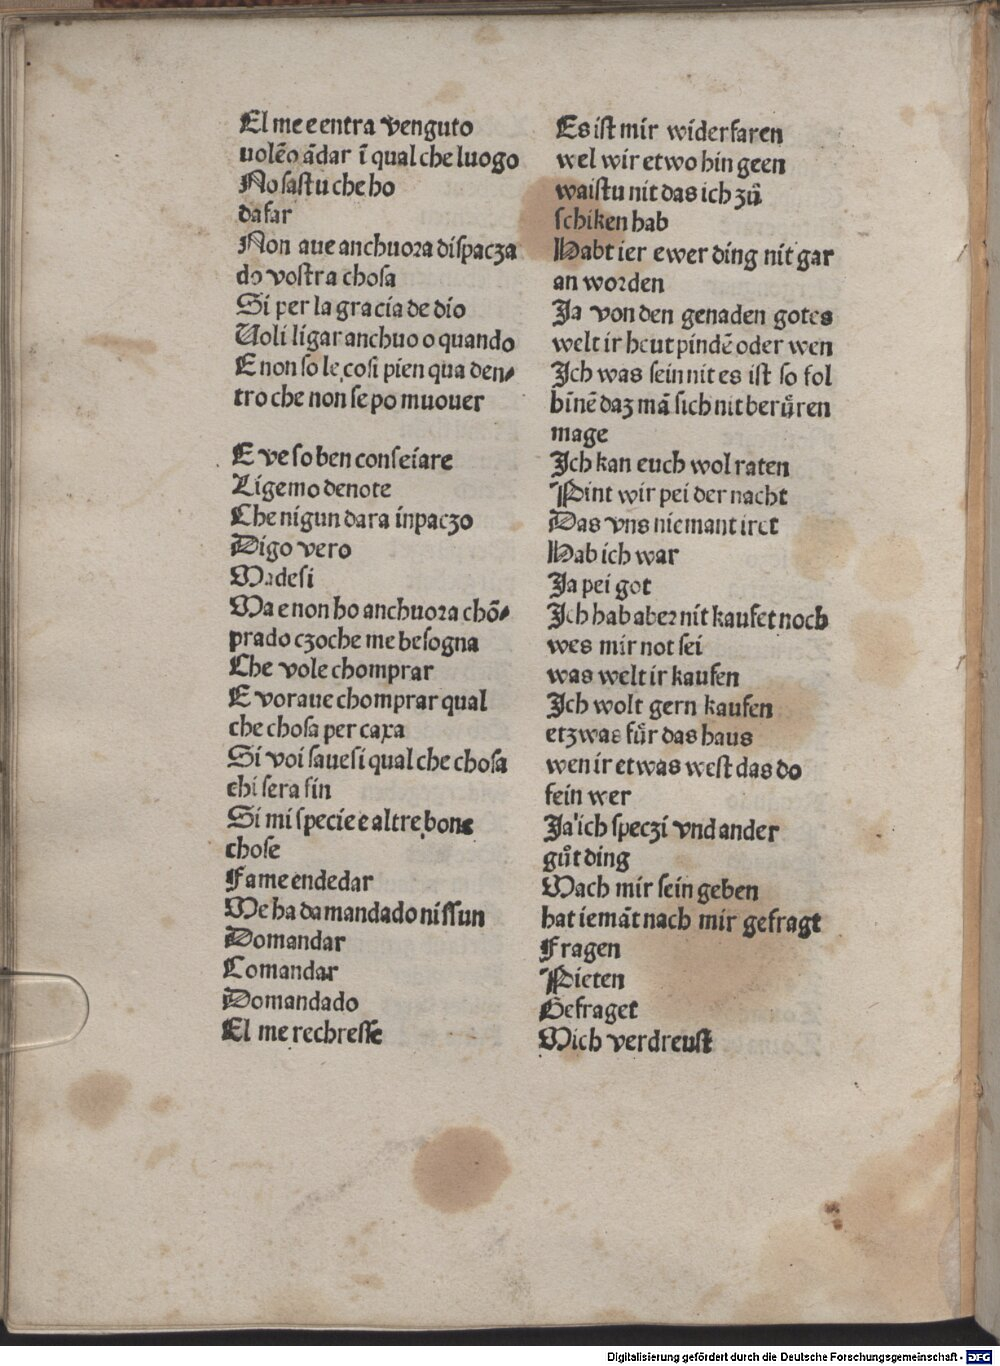 El me e entra venguto
uolẽo ãdar ĩ qual che luogo
No sastu che ho
da far
Non aue anchuora dispacza
do vostra chosa
Si per la gracia de dio
Uoli ligar anchuo o quando
E non so le cosi pien qua den⸗
tro che non se po muouer
E ve so ben conseiare
Ligemo de note
Che nigun dara inpaczo
Digo vero
Madesi
Ma e non ho anchuora chõ⸗
prado czoche me besogna
Che vole chomprar
E voraue chomprar qual
che chosa per caxa
Si voi sauesi qual che chosa
chi sera fin
Si mi specie e altre bone
chose
Fame ende dar
Me ha damandado nissun
Domandar
Comandar
Domandado
El me rechresse
Es ist mir widerfaren
wel wir etwo hin geen
waistu nit das ich zů
schiken hab
Habt ier ewer ding nit gar
an worden
Ja von den genaden gotes
welt ir heut pindẽ oder wen
Ich was sein nit es ist so fol
bĩnẽ daz mã sich nit berůren
mage
Ich kan euch wol raten
Pint wir pei der nacht
Das vns niemant iret
Hab ich war
Ja pei got
Ich hab aber nit kaufet noch
wes mir not sei
was welt ir kaufen
Ich wolt gern kaufen
etzwas fůr das haus
wen ir etwas west das do
fein wer
Ja ich speczi vnd ander
gůt ding
Mach mir sein geben
hat iemãt nach mir gefragt
Fragen
Pieten
Gefraget
Mich verdreust
Digitalisierung gefördert durch die Deutsche Forschungsgemeinschaft - DFG